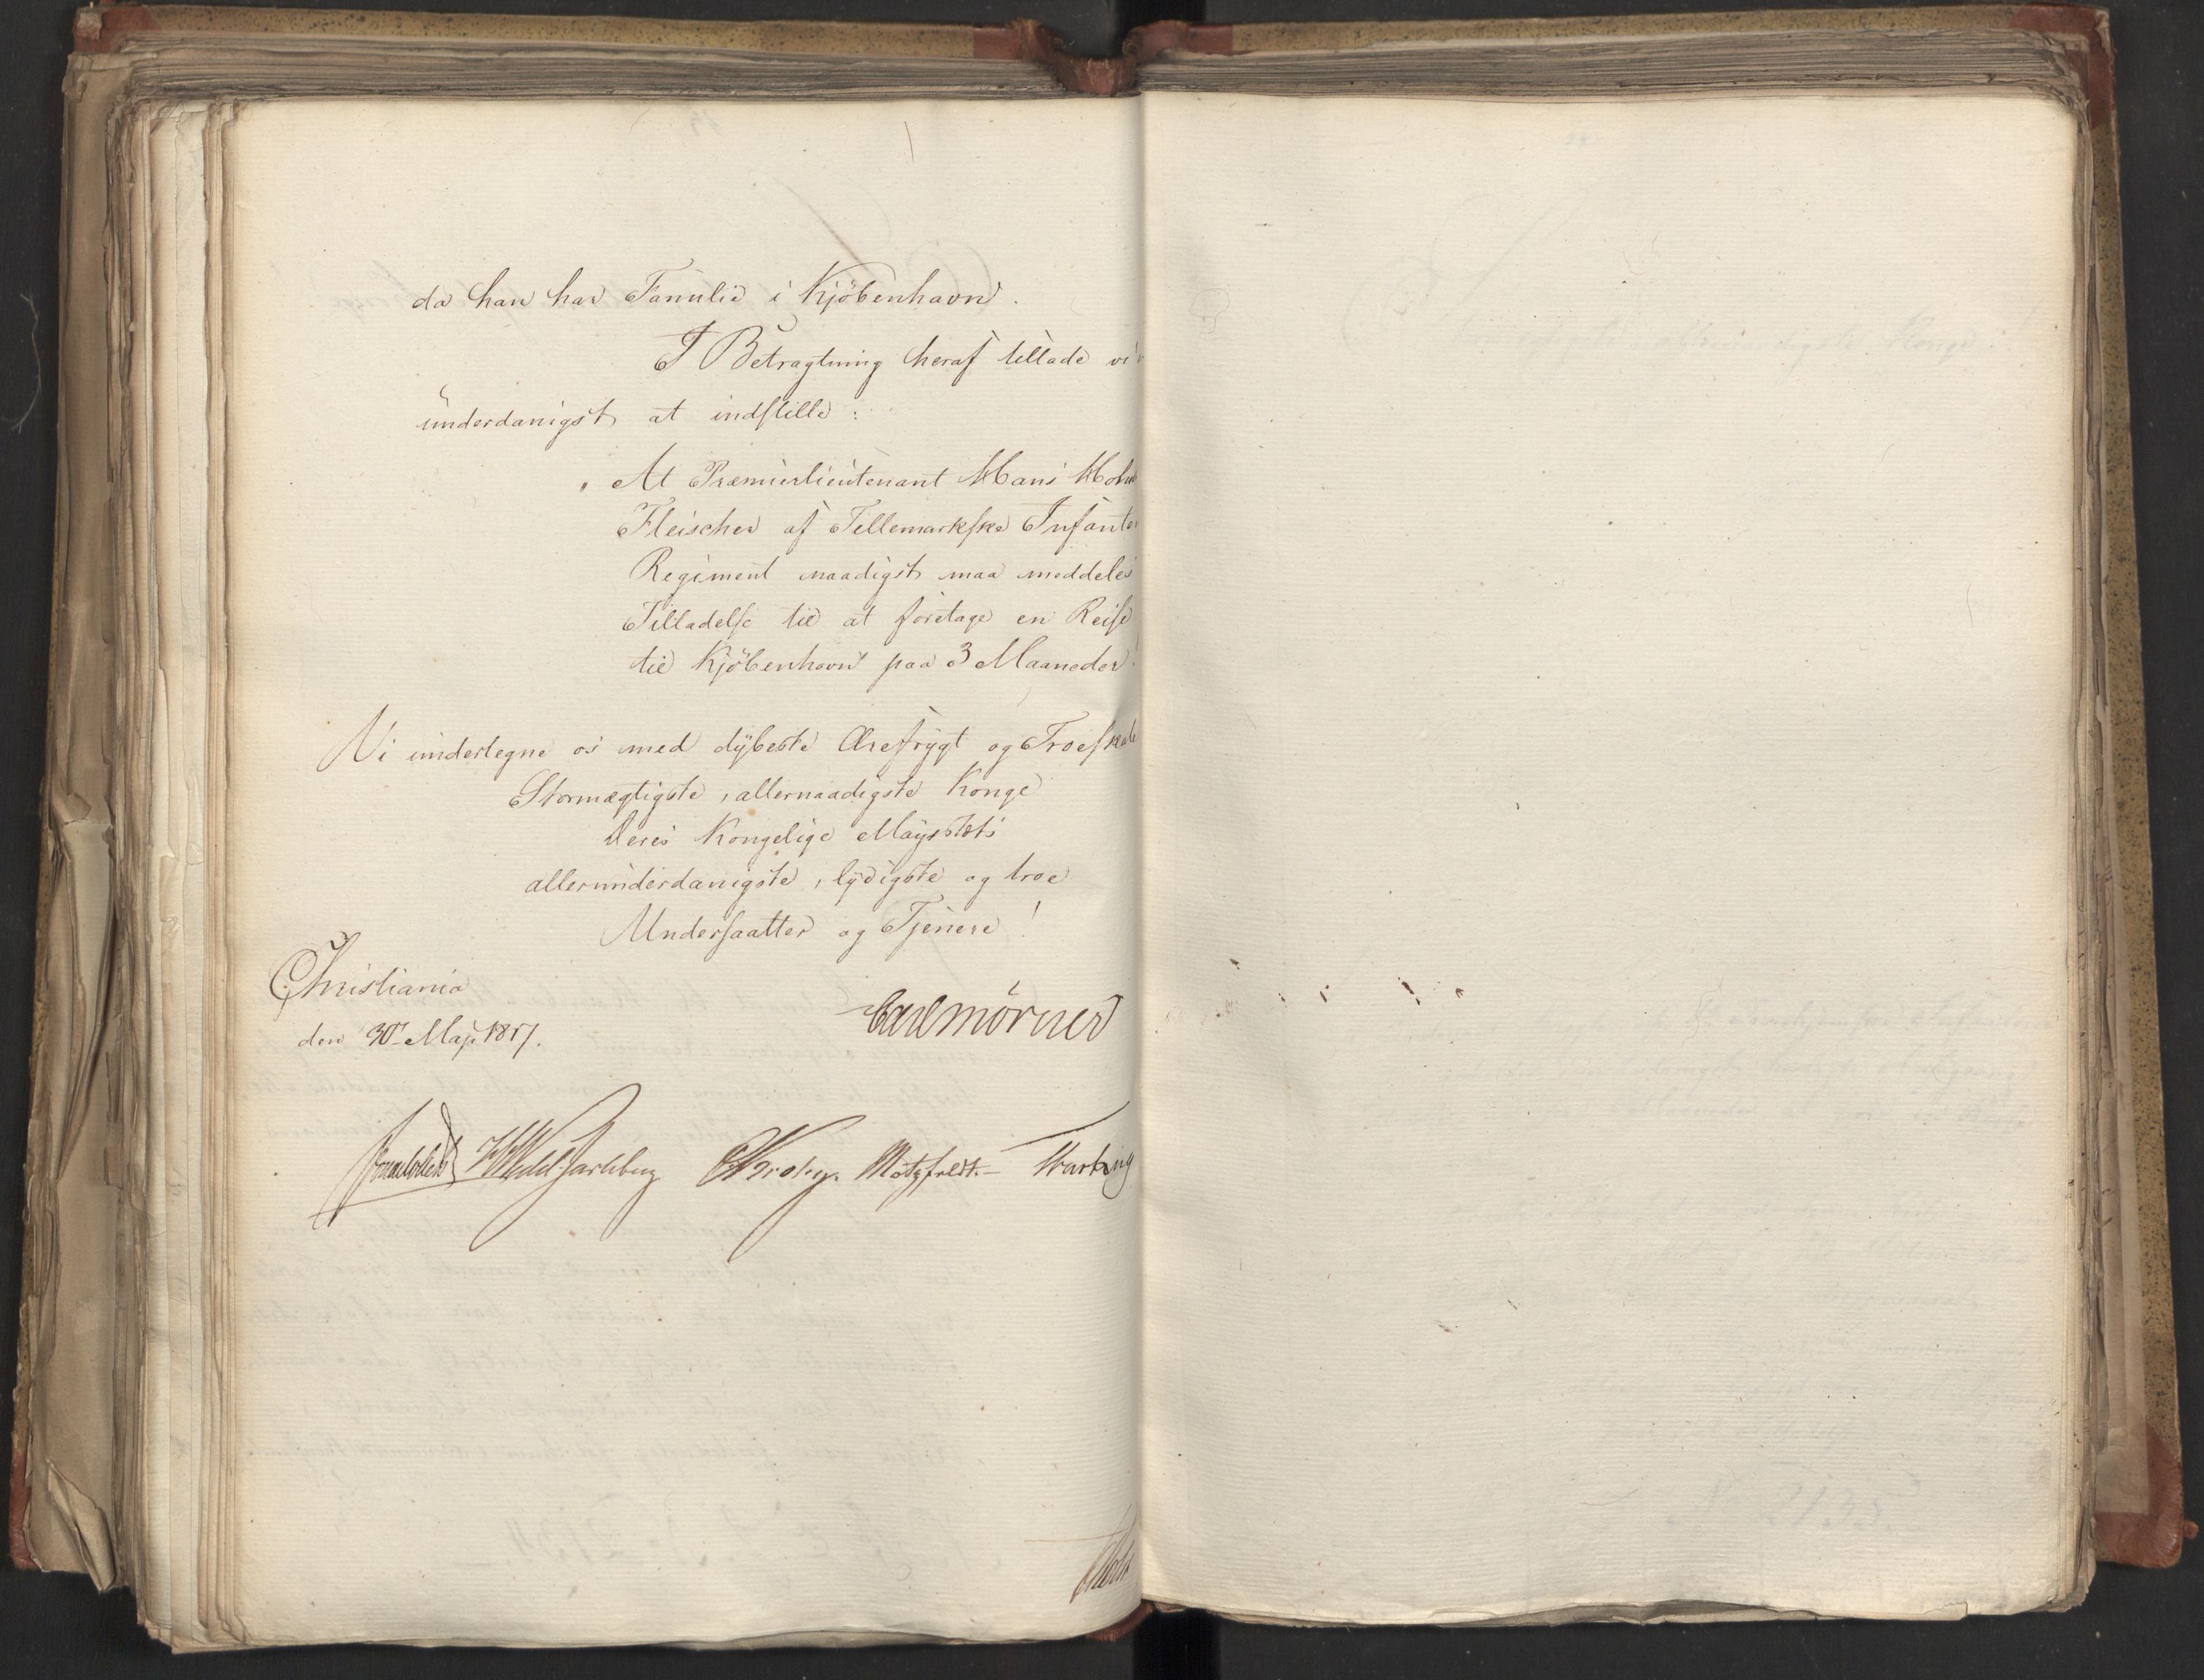 da han har Familie i Kjöbenhavn.
I Betragtning heraf tillade vi
underdanigst at indstille:
„At Premierlieutenant Hans Holm
Fleischer af Tellemarkske Infanter
Regiment naadigst maa meddeles
Tilladelse til at foretage en Reise
til Kjöbenhavn paa 3 Maaneder.
Vi undertegne os med dybeste Ærefrygt og Troeskab
Stormægtigste, allernaadigste Konge
Deres Kongelige Majestæts
allerunderdanigste, lydigste og troe
Undersaatter og Tjenere!
Christiania
den 30te Maji 1817.
Carl Mörner
Sommerhielm HWedel Jarlsberg CKrohg. Motzfeldt.
Holst